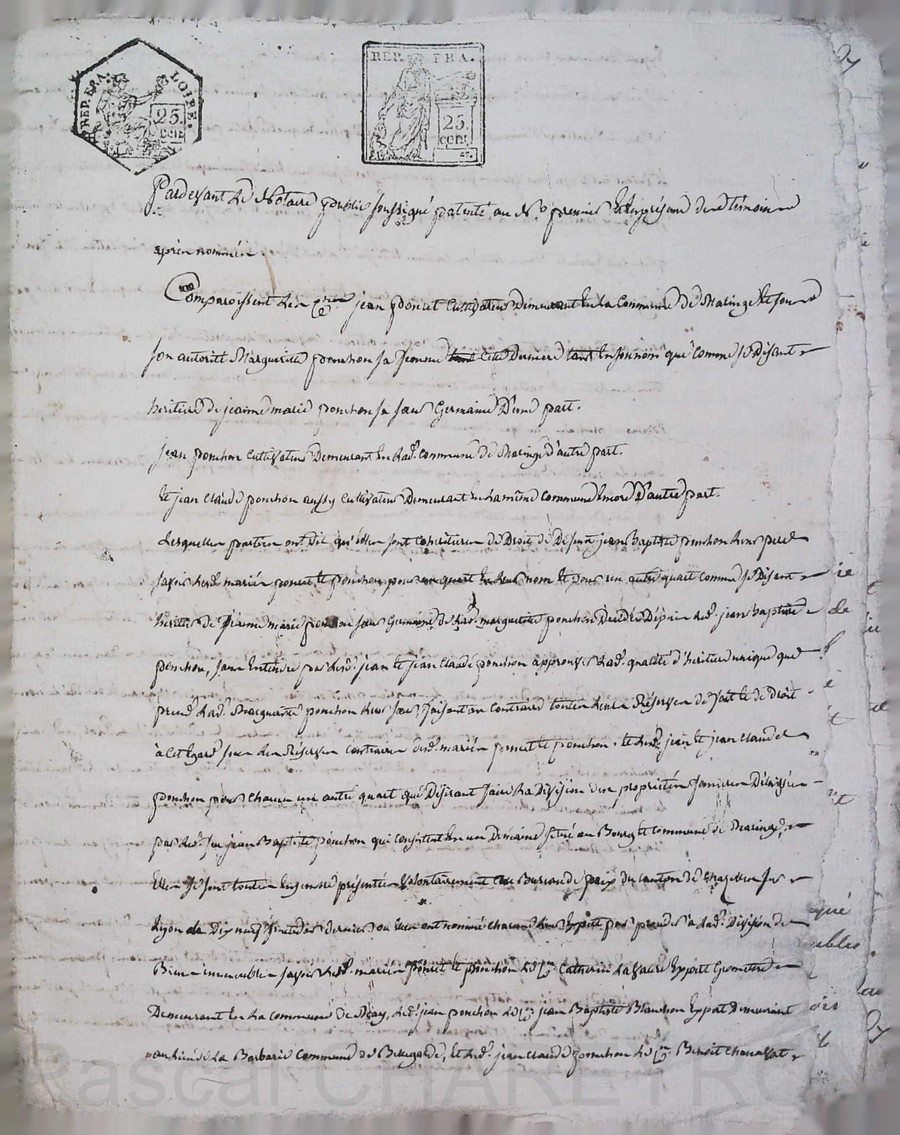 REP. FRA. LOIRE. 25 CENT.
REP. FRA. 25 CENT. 47.
Pardevant Le Notaire public soussigné patenté au N.º premier Et En présence des témoins
après nommés.
Comparoissent Les Cens jean poncet Cultivateur Demeurant En La Commune De Maringe Et sous
son autorité Marguerite ponchon sa femme Cette Derniere tant En son nom que Comme se Disant
heritiere de jeanne marie ponchon sa sœur Germaine D'une part.
jean ponchon Cultivateur Demeurant En lad. Commune de Maringe D'autre part.
Et jean Claude ponchon aussy Cultivateur Demeurant En La même Commune Encore D'autre part.
Lesquelles parties ont Dit qu'elles sont Cohéritieres De Droit de Defunt jean Baptiste ponchon Leur pere
savoir Lesd. mariés poncet Et ponchon pour un quart En Leur nom Et pour un autre quart Comme se Disant
héritiere de jeanne marie ponchon sœur Germaine De lad. marguerite ponchon Décédée Depuis Led. jean Baptiste
ponchon, sans Entendre par Lesd. jean Et jean Claude ponchon approuver Lad. qualité d'héritiere unique que
prend Lad. Marguerite ponchon Leur sœur, faisant au Contraire toutes Leurs Réserves De fait Et De Droit
à Cet Egard sous Les Réserves Contraires desd. mariés poncet Et ponchon. Et Lesd. jean Et jean Claude
ponchon pour Chacun un autre quart qui Désirant faire La Division des propriétés foncieres Délaissées
par Led. feu jean Baptiste ponchon qui Consistent En un Domaine situé au Bourg Et Commune De Maringe,
Elles se sont toutes Ensemble présentées Volontairement au Bureau de paix du Canton de Chazelles sur
Lyon Le Dix neuf Dernier où Elles ont nommé Chacune Leur Expert pour proceder à Lad. Division de
Biens immeubles savoir Lesd. mariés poncet Et ponchon Le Cen Catherin Expert Géometre
Demeurant En La Commune de , Led. jean ponchon Le Cen jean Baptiste Blanchon Expert Demeurant
au Lieu de La Barbarie Commune De Bellegarde, Et Led. jean Claude ponchon Le Cen Benoit
Pascal CHAREYRON